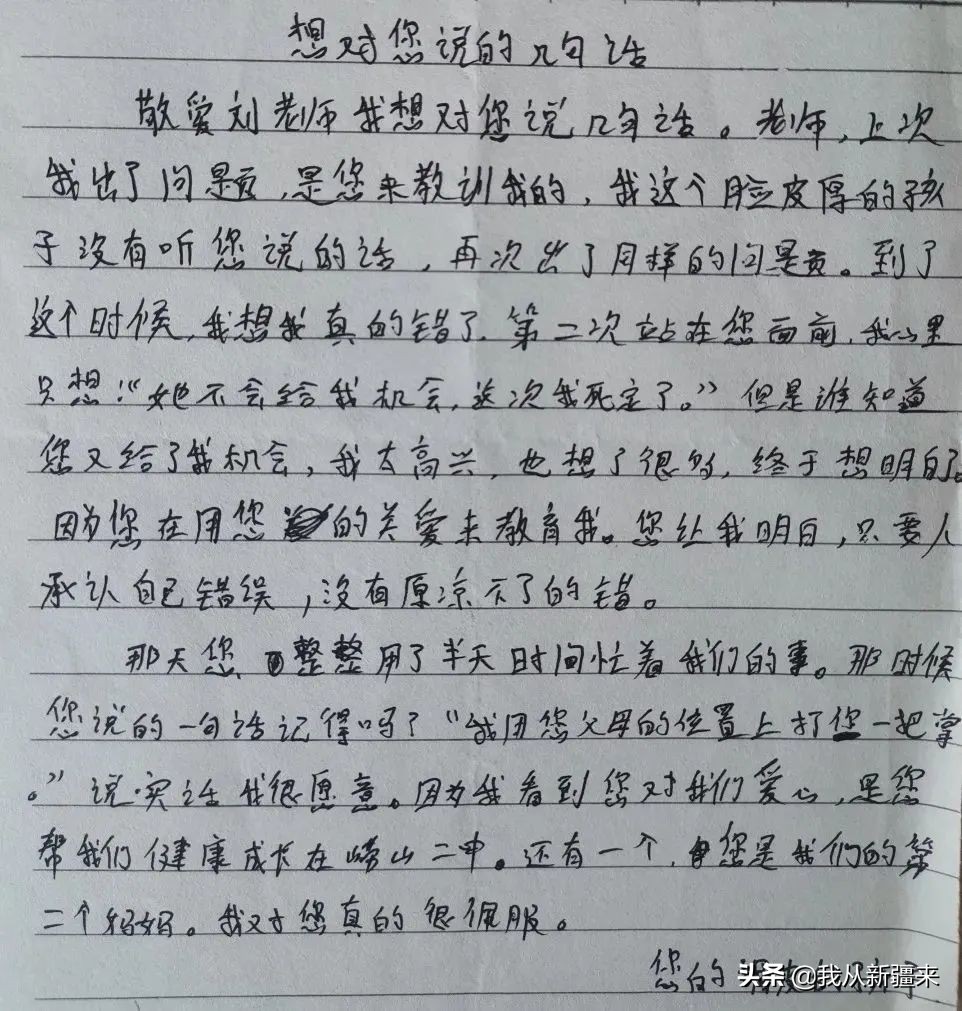 想对您说的几句话
敬爱刘老师我想对您说几句话。老师，上次
我出了问题，是您来教训我的，我这个脸皮厚的孩
子没有听您说的话，再次出了同样的问题。到了
这个时候，我想我真的错了，第二次站在您面前，我心里
只想：“她不会给我机会，这次我死定了。”但是谁知道
您又给了我机会，我太高兴，也想了很多，终于想明白了。
因为您在用您的关爱来教育我。您让我明白，只要人
承认自己错误，没有原凉不了的错。
那天您整整用了半天时间忙着我们的事。那时候
您说的一句话记得吗？“我用您父母的位置上打您一把掌
。”说实话我很愿意。因为我看到您对我们爱心，是您
帮我们健康成长在崂山二中。还有一个，您是我们的第
二个妈妈。我对您真的很佩服。
您的
头条 @我从新疆来